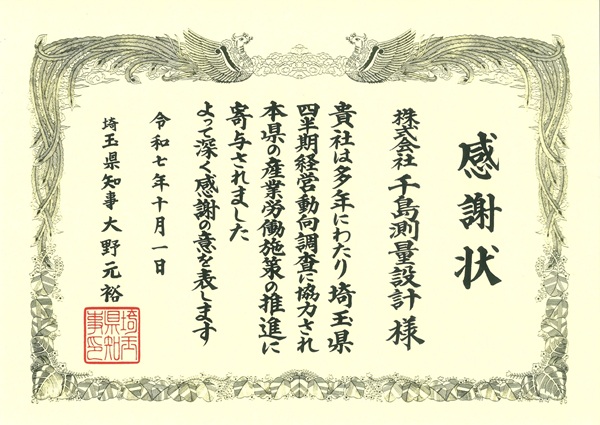 感謝状
株式会社 千島測量設計 様
貴社は多年にわたり埼玉県
四半期経営動向調査に協力され
本県の産業労働施策の推進に
寄与されました
よって深く感謝の意を表します
令和七年十月一日
埼玉県知事 大野元裕
埼玉
県知
事印